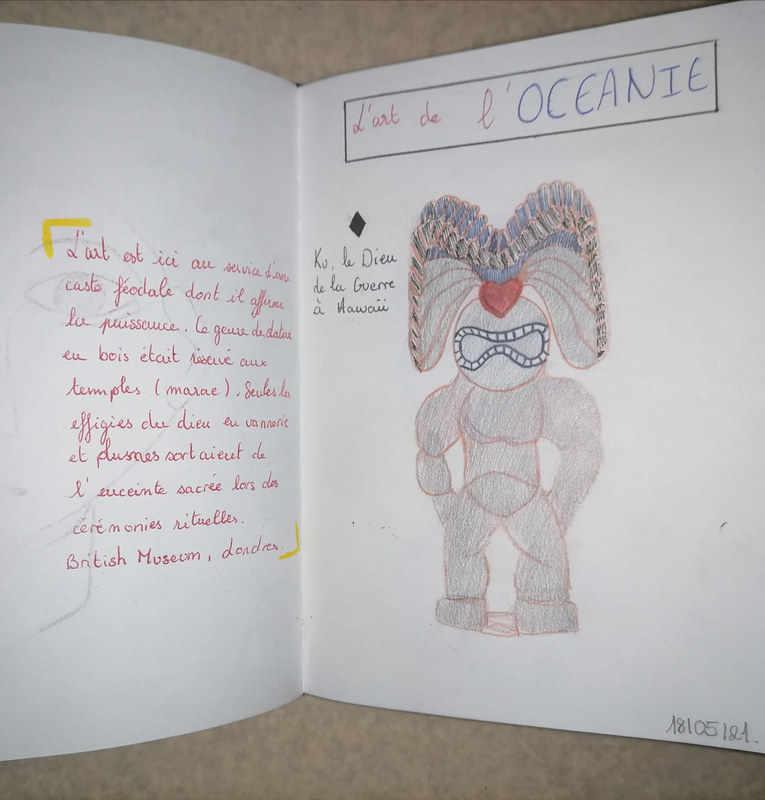 L'art est ici au service d'une
caste féodale dont il affirme
la puissance. Ce genre de statue
en bois était réservé aux
temples (marae). Seules les
effigies du dieu en vannerie
et plumes sortaient de
l'enceinte sacrée lors des
cérémonies rituelles.
British Museum, Londres.
L'art de l'OCEANIE
Ku, le Dieu
de la Guerre
à Hawaïi
18/05/21.